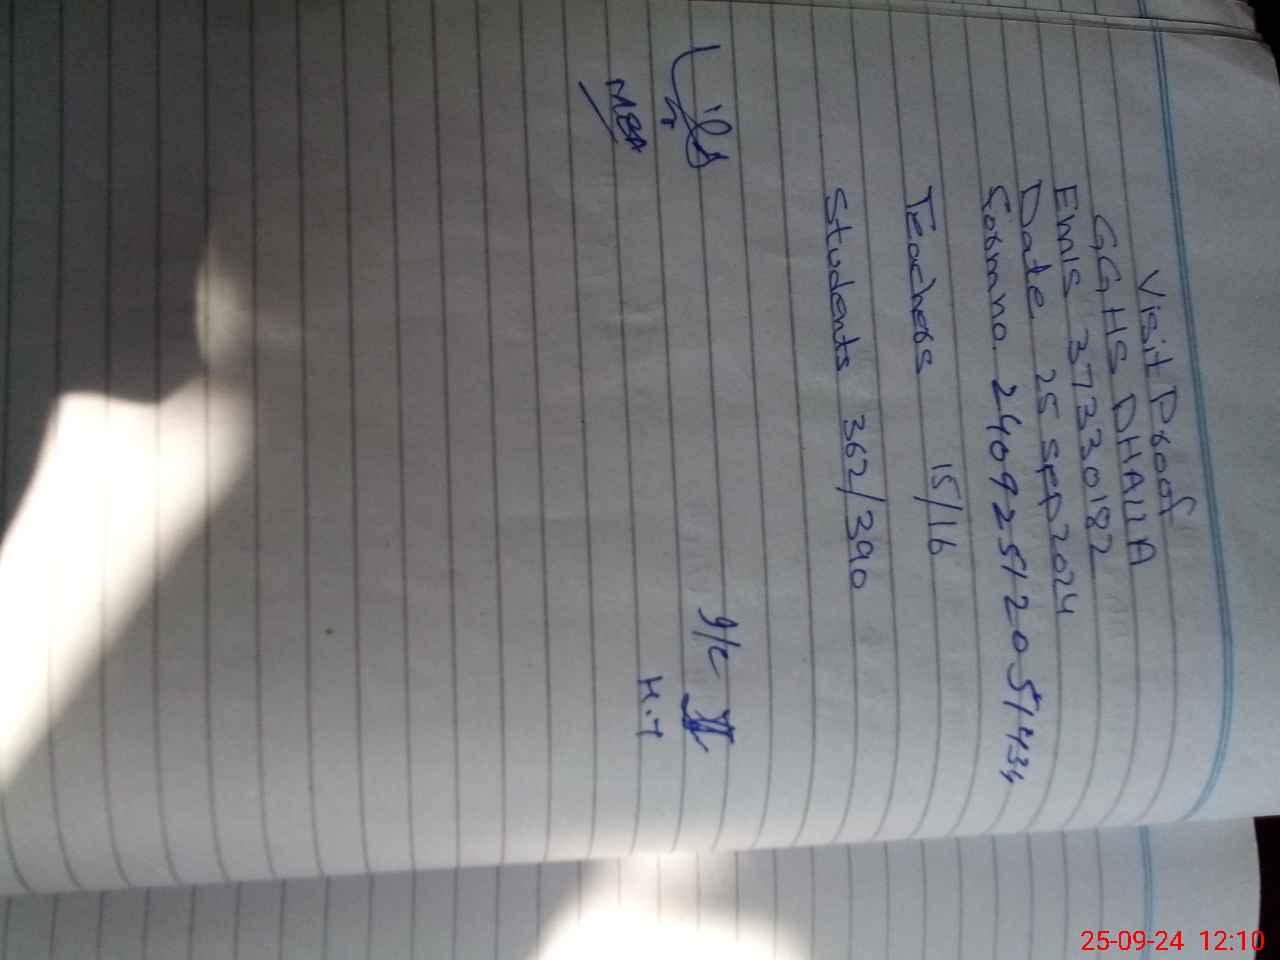 Visit Proof
GGHS DHALLA
EMIS 37330182
Date 25 sep 2024
Form no. 240925120571434
Teachers 15/16
Students 362/390
MEA
I/C
H.T
25-09-24 12:10